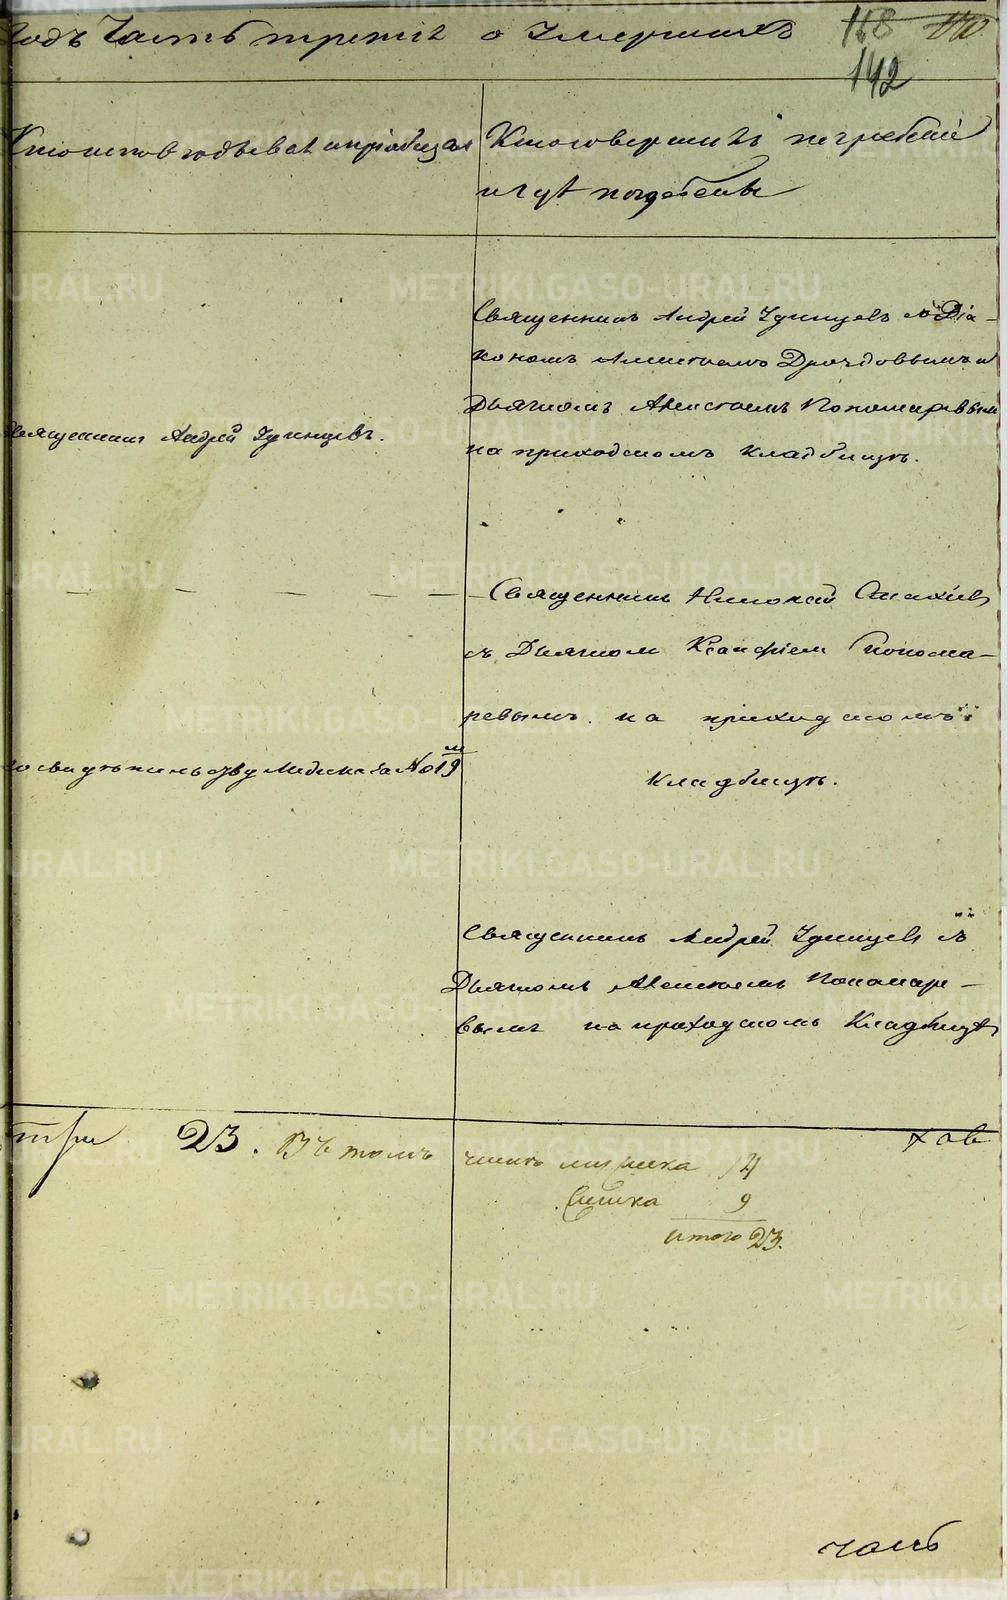 годъ Часть третія о Умершихъ 168 170
142
Кто исповѣдывалъ и пріобщалъ
Кто совершалъ погребеніе
и гдѣ погребены
Священникъ Андрей Удинцевъ съ Діа-
кономъ Алексѣемъ Дроздовымъ и
Дьячкомъ Алексѣемъ Пономаревым
на приходскомъ кладбищѣ.
Священникъ Андрей Удинцевъ.
Священникъ Николай
съ Дьячком Ксанфіем Понома-
ревымъ на приходскомъ
кладбищѣ.
По свидѣтельству Медика за № 19
Священникъ Андрей Удинцевъ съ
Дьячкомъ Алексѣемъ Пономаре-
вымъ на приходскомъ Кладбищѣ
три 23. Въ томъ числѣ мужеска 14
женска 9
итого 23.
ховъ
часть
METRIKI.GASO-URAL.RU